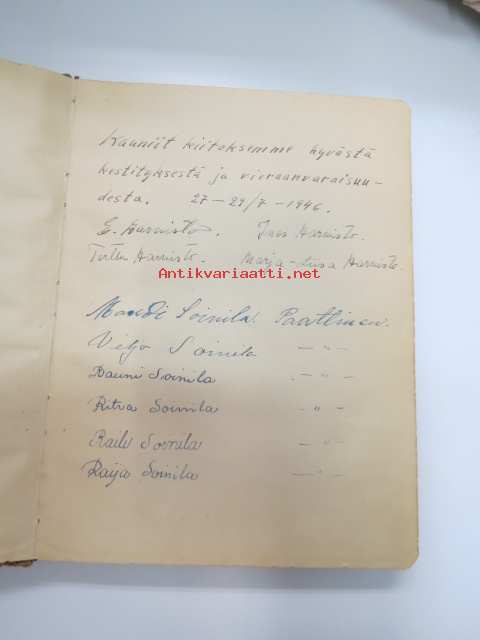 Kauniit kiitoksemme hyvästä
kestityksestä ja vieraanvaraisuu-
desta. 27-29/7-1946.
E. Harvisto. Ines Harvisto.
Terttu Harvisto. Marja-Liisa Harvisto.
Antikvariaatti.net
Maudi Soinila. Paattinen.
Veljo Soinila - " -
Rauni Soinila - " -
Ritva Soinila - " -
Raili Soinila - " -
Raija Soinila - " -